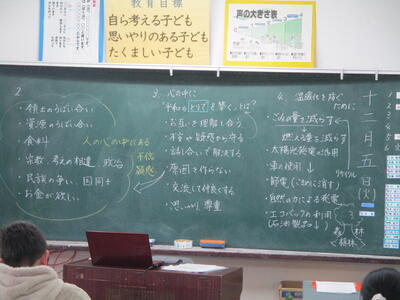 教育目標
自ら考える子ども
思いやりのある子ども
たくましい子ども
声の大きさ表
2.
・領土のうばい合い
・資源のうばい合い
・食料
・宗教、考えの相違、政治
・民族の争い、国同士
・お金が欲しい
人の心の中にある
不信
疑惑
3. 心の中に
"平和のとりでを築く"とは?
・お互いを理解し合う
・不安や疑惑から守る
・話し合いで解決する
・原因を作らない
・交流して仲良くする
・思いやり、尊重
4. 温暖化を防ぐ
ために
・ごみの量を減らす
燃える量を減らす
・太陽光発電の活用
・車の使用↓
リサイクル
・節電(こまめに消す)
・自然の力による発電
・エコバックの利用
(石油製品の↓)
森林
植林
十二月五日(火)